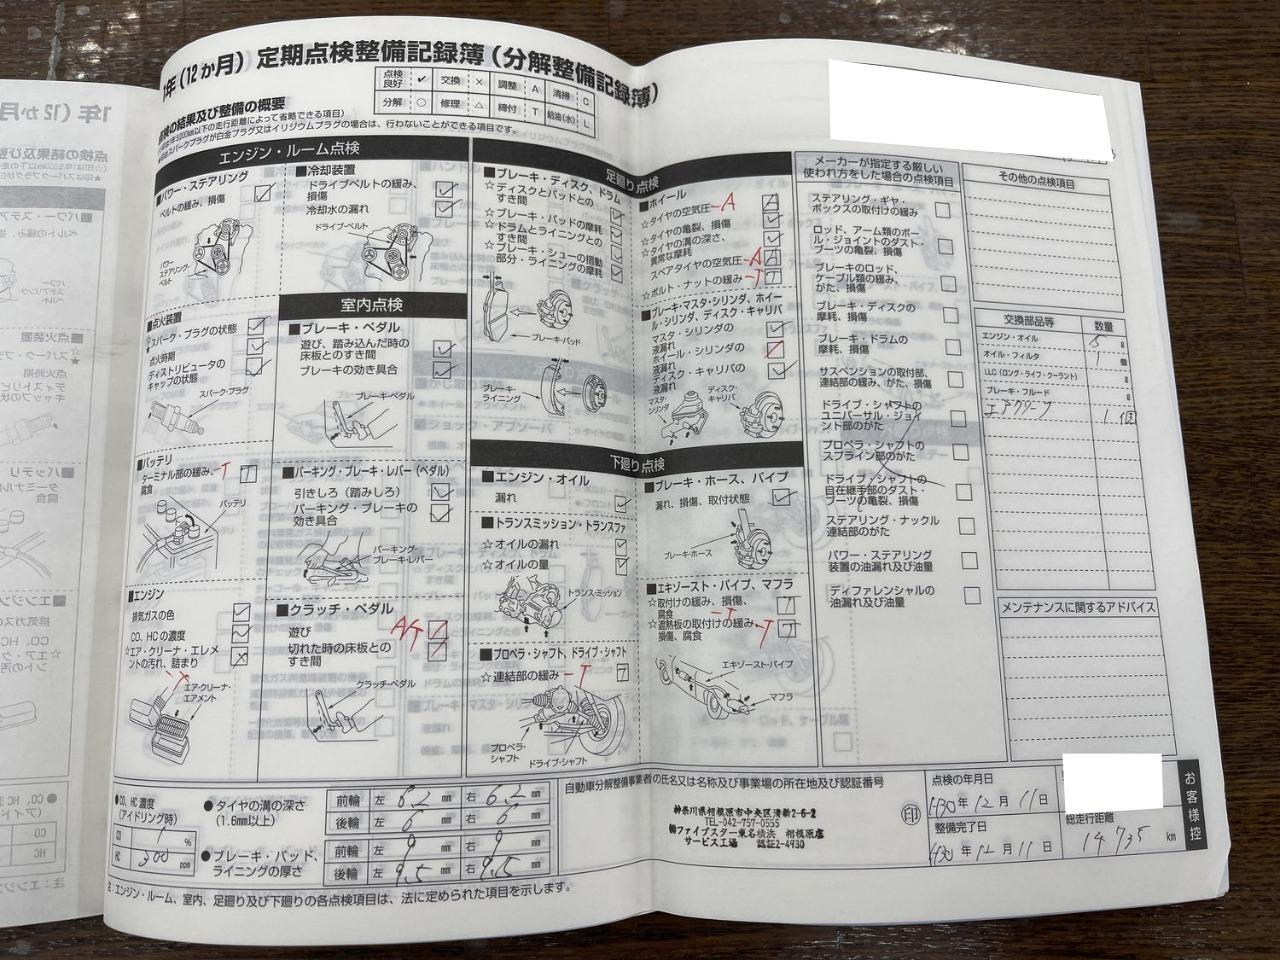 1年(12か月)定期点検整備記録簿(分解整備記録簿)
点検良好 ✓ 交換 × 調整 A 清掃 C
分解 ○ 修理 △ 締付 T 給油(水) L
検の結果及び整備の概要
エンジン・ルーム点検
■パワー・ステアリング
ベルトの緩み、損傷
パワー・ステアリング・ベルト
■点火装置
☆スパーク・プラグの状態
点火時期
ディストリビュータのキャップの状態
スパーク・プラグ
■バッテリ
ターミナル部の緩み、腐食 T
バッテリ
■エンジン
排気ガスの色
CO、HCの濃度
☆エア・クリーナ・エレメントの汚れ、詰まり
エア・クリーナ・エアメント
■冷却装置
ドライブベルトの緩み、損傷
冷却水の漏れ
ドライブ・ベルト
室内点検
■ブレーキ・ペダル
遊び、踏み込んだ時の床板とのすき間
ブレーキの効き具合
ブレーキ・ペダル
■パーキング・ブレーキ・レバー(ペダル)
引きしろ(踏みしろ)
パーキング・ブレーキの効き具合
パーキング・ブレーキ・レバー
■クラッチ・ペダル
遊び
切れた時の床板とのすき間
A/T
クラッチ・ペダル
足廻り点検
■ブレーキ・ディスク、ドラム
☆ディスクとパッドとのすき間
☆ブレーキ・パッドの摩耗
☆ドラムとライニングとのすき間
☆ブレーキ・シューの摺動部分・ライニングの摩耗
ブレーキ・パッド
ブレーキ・ライニング
■ホイール
☆タイヤの空気圧 A
☆タイヤの亀裂、損傷
☆タイヤの溝の深さ、異常な摩耗
スペアタイヤの空気圧 A
☆ボルト・ナットの緩み T
■ブレーキ・マスタ・シリンダ、ホイール・シリンダ、ディスク・キャリパ
マスタ・シリンダの液漏れ
ホイール・シリンダの液漏れ
ディスク・キャリパの液漏れ
マスタ・シリンダ
ディスク・キャリパ
下廻り点検
■エンジン・オイル
漏れ
■トランスミッション・トランスファ
☆オイルの漏れ
☆オイルの量
トランスミッション
■プロペラ・シャフト、ドライブ・シャフト
☆連結部の緩み T
プロペラ・シャフト
ドライブ・シャフト
■ブレーキ・ホース、パイプ
漏れ、損傷、取付状態
ブレーキ・ホース
■エキゾースト・パイプ、マフラ
☆取付けの緩み、損傷、腐食 T
☆遮熱板の取付けの緩み、損傷、腐食 T
エキゾースト・パイプ
マフラ
メーカーが指定する厳しい使われ方をした場合の点検項目
ステアリング・ギヤ・ボックスの取付けの緩み
ロッド、アーム類のボール・ジョイントのダスト・ブーツの亀裂、損傷
ブレーキのロッド、ケーブル類の緩み、がた、損傷
ブレーキ・ディスクの摩耗、損傷
ブレーキ・ドラムの摩耗、損傷
サスペンションの取付部、連結部の緩み、がた、損傷
ドライブ・シャフトのユニバーサル・ジョイント部のがた
プロペラ・シャフトのスプライン部のがた
ドライブ・シャフトの自在継手部のダスト・ブーツの亀裂、損傷
ステアリング・ナックル連結部のがた
パワー・ステアリング装置の油漏れ及び油量
ディファレンシャルの油漏れ及び油量
その他の点検項目
交換部品等 数量
エンジン・オイル 5 ℓ
オイル・フィルタ 1 個
LLC(ロング・ライフ・クーラント) ℓ
ブレーキ・フルード ℓ
メンテナンスに関するアドバイス
●CO、HC濃度(アイドリング時)
CO 1 %
HC 300 ppm
●タイヤの溝の深さ(1.6mm以上)
前輪 左 6.2 mm 右 6.2 mm
後輪 左 6 mm 右 6 mm
●ブレーキ・パッド、ライニングの厚さ
前輪 左 9 mm 右 9 mm
後輪 左 9.5 mm 右 9.5 mm
自動車分解整備事業者の氏名又は名称及び事業場の所在地及び認証番号
神奈川県相模原市中央区清新2-6-2
TEL・042-757-0555
㈱ファイブスター東名横浜 相模原店
サービス工場 認証2-4930
㊞
点検の年月日
H30年12月11日
整備完了日
H30年12月11日
総走行距離
14735 km
お客様控
注:エンジン・ルーム、室内、足廻り及び下廻りの各点検項目は、法に定められた項目を示します。